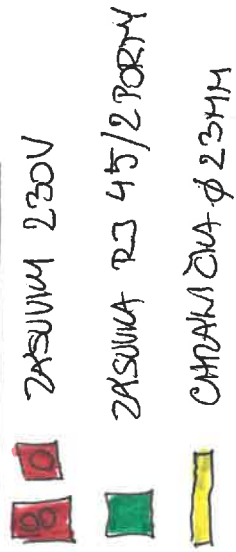 ZÁSUVKY 230V
ZÁSUVKA RJ 45/2 PORTY
CHRÁNIČKA Ø 23MM